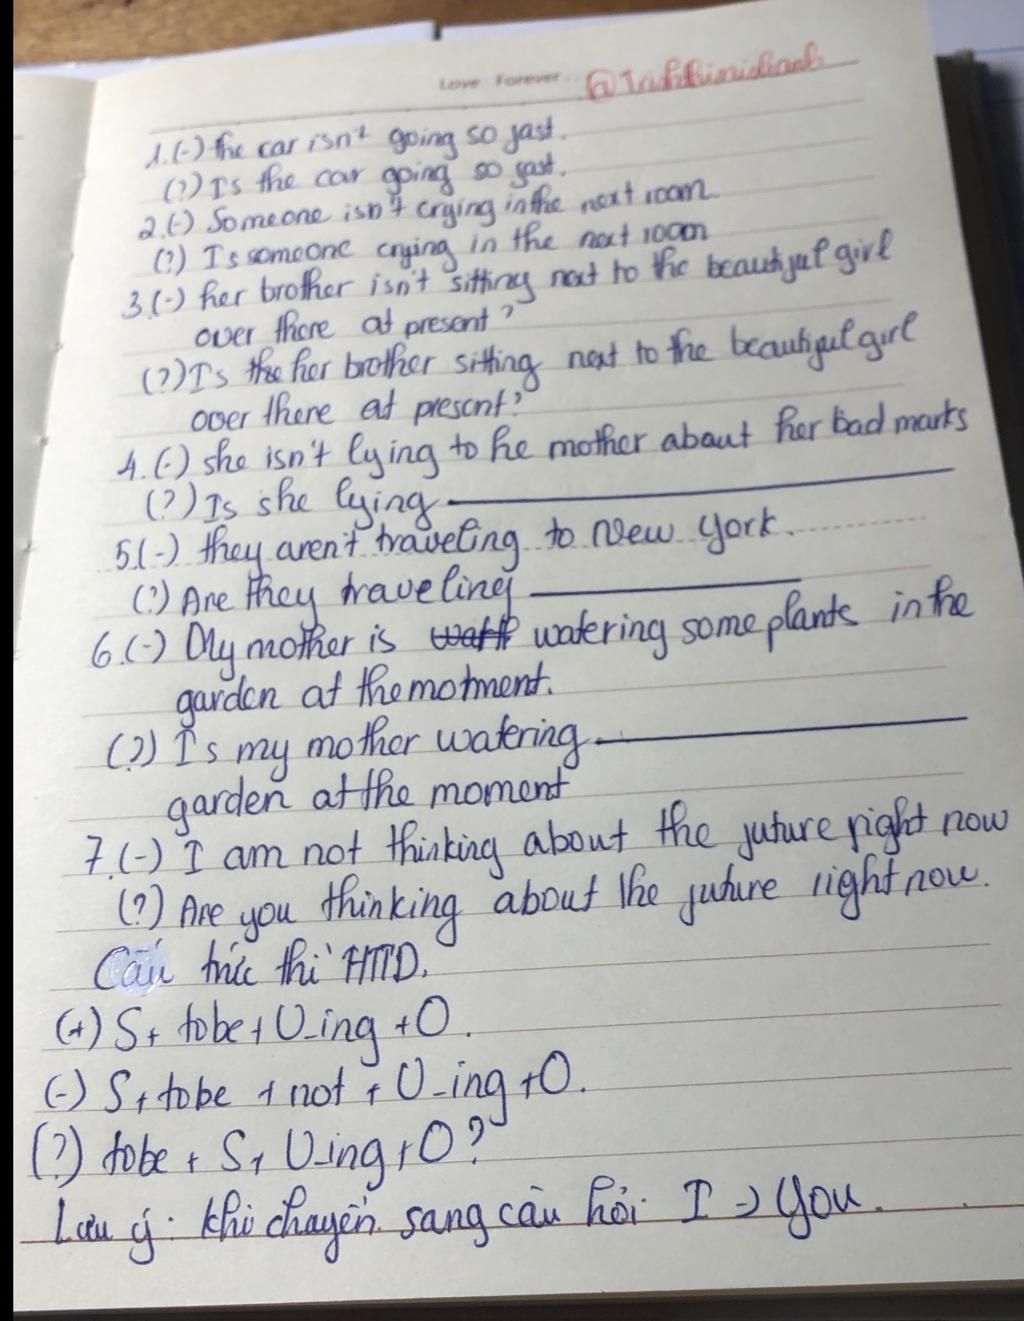 Love Forever...
1.(-) the car isn't going so fast.
(?) Is the car going so fast.
2.(-) Someone isn't crying in the next room.
(?) Is someone crying in the next room
3.(-) her brother isn't sitting next to the beautiful girl
over there at present?
(?) Is the her brother sitting next to the beautiful girl
over there at present?
4.(-) she isn't lying to he mother about her bad marks
(?) Is she lying
5.(-) they aren't traveling to New york.
(?) Are they traveling
6.(-) My mother is watering some plants in the
garden at the motment.
(?) Is my mother watering
garden at the moment
7.(-) I am not thinking about the future right now
(?) Are you thinking about the future right now.
Cấu trúc thì HTTD.
(+) S + tobe + V-ing + O.
(-) S + tobe + not + V-ing + O.
(?) tobe + S + V-ing + O?
Lưu ý: khi chuyển sang câu hỏi I → you.